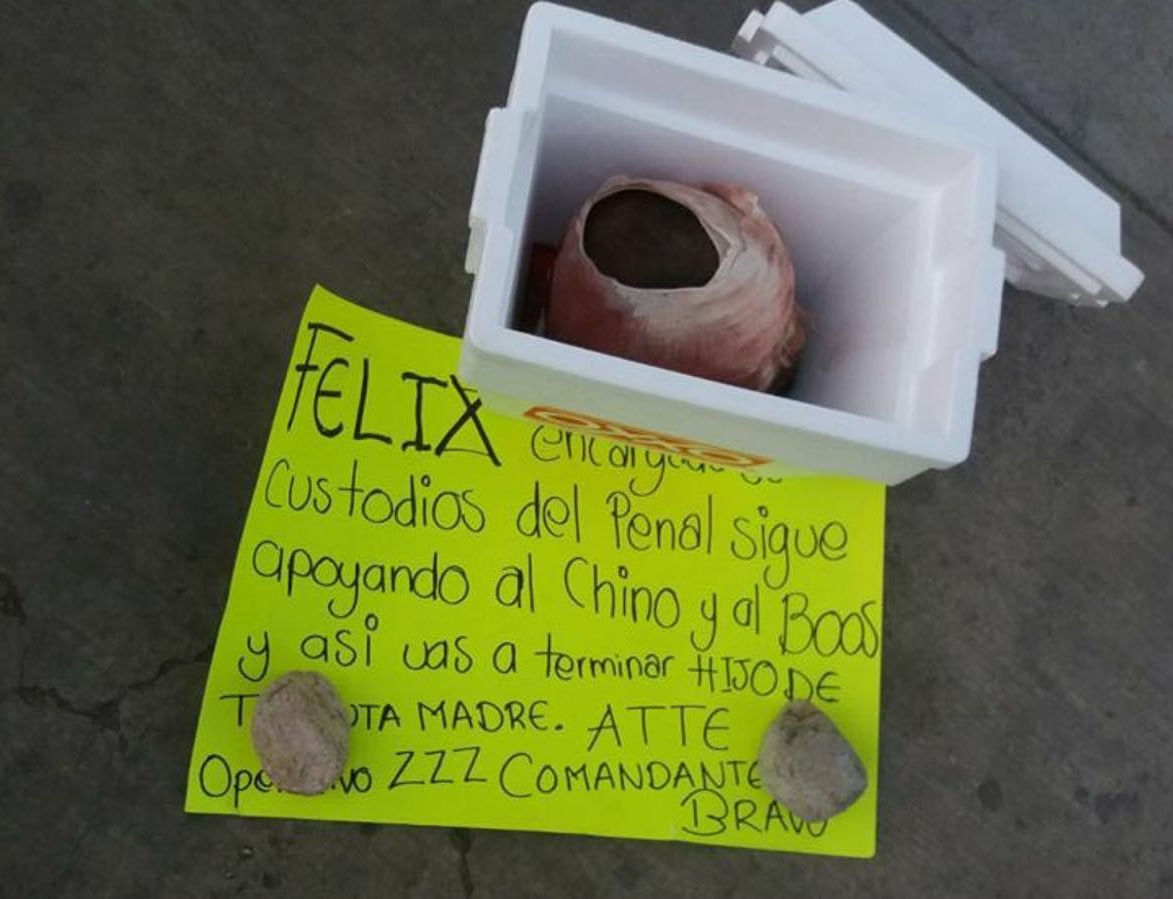 OXXO
FELIX
Custodios del Penal sigue
apoyando al Chino y al Boos
y asi vas a terminar HIJO DE
MADRE. ATTE
ZZZ COMANDANTE
BRAVO